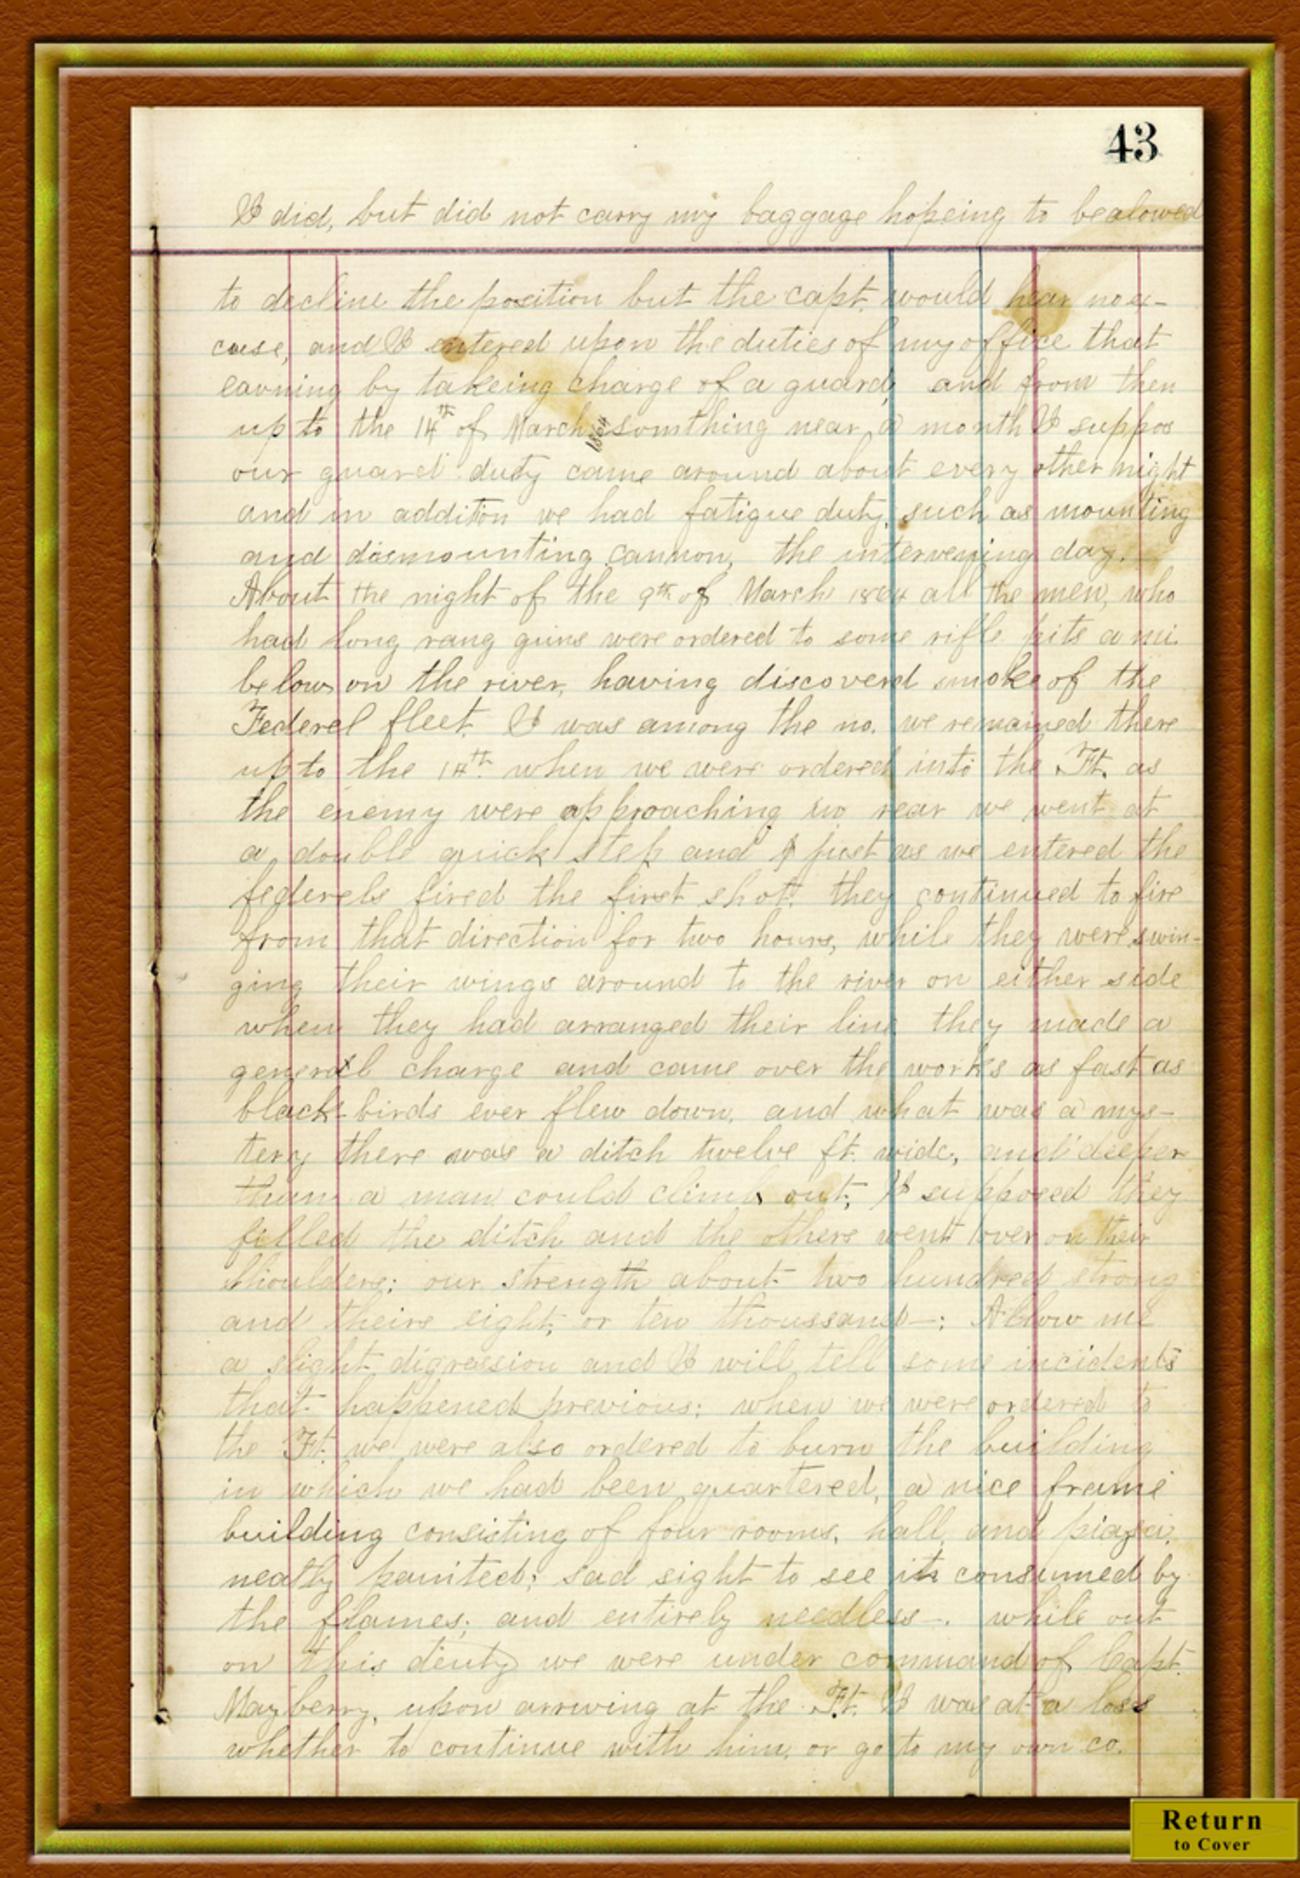 43
I did, but did not carry my baggage hopeing to be alowed
to decline the position but the capt. would hear no ex-
cuse, and I entered upon the duties of my office that
eavning by takeing charge of a guard, and from then
up to the 14th of March 1864 somthing near a month I suppos
our guard duty came around about every other night
and in addition we had fatigue duty, such as mounting
and dismounting cannon, the intervening day.
About the night of the 9th of March 1864 all the men, who
had long rang guns were ordered to some rifle pits a mi.
below on the river, having discoverd smoke of the
Federel fleet. I was among the no. we remained there
up to the 14th when we were ordered into the Ft. as
the enemy were approaching in rear we went at
a double quick step and just as we entered the
federels fired the first shot. they continued to fire
from that direction for two hours, while they were swin-
ging their wings around to the river on either side
when they had arranged their line they made a
general charge and came over the works as fast as
black birds ever flew down, and what was a mys-
tery there was a ditch twelve ft. wide, and deeper
than a man could climb out; I supposed they
filled the ditch and the others went over on their
shoulders; our strength about two hundred strong
and theirs eight, or ten thoussand-; Allow me
a slight digression and I will tell some incidents
that happened previous; when we were ordered to
the Ft. we were also ordered to burn the building
in which we had been quartered, a nice frame
building consisting of four rooms, hall, and piaza,
neatly painted; sad sight to see it consumed by
the flames; and entirely needless-. while out
on this deuty we were under command of Capt.
Mayberry, upon arriving at the Ft. I was at a loss
whether to continue with him, or go to my own co.
Return
to Cover